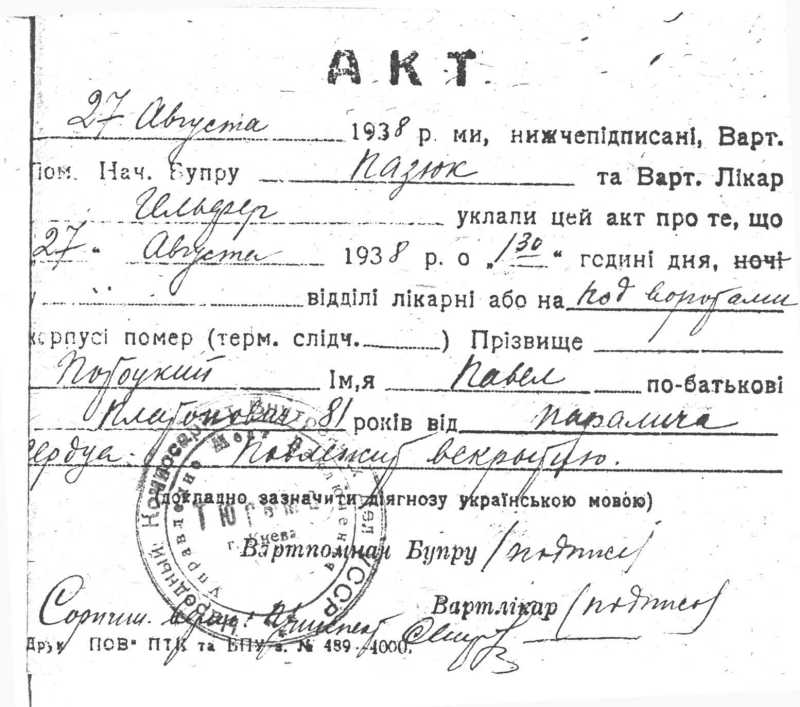 АКТ.
27 Августа 1938 р. ми, нижчепідписані, Варт.
Пом. Нач. Бупру Пазюк та Варт. Лікар
Гельфер уклали цей акт про те, що
„27 “ Августа 1938 р. о „1 30 “ годині дня, ночі
у відділі лікарні або на под воротами
корпусі помер (терм. слідч. ) Прізвище
Потоцкий Ім,я Павел по-батькові
Платонович 81 років від паралича
сердца. Подлежит вскрытию.
(докладно зазначити діягнозу українською мовою)
Вартпомнач Бупру (подпись)
Вартлікар (подпись)
Друк ПОВ" ПТК та БПУ з. № 489—4000.
Народный УССР
Управление Мест Заключения
ТЮРЬМА
г. Киева